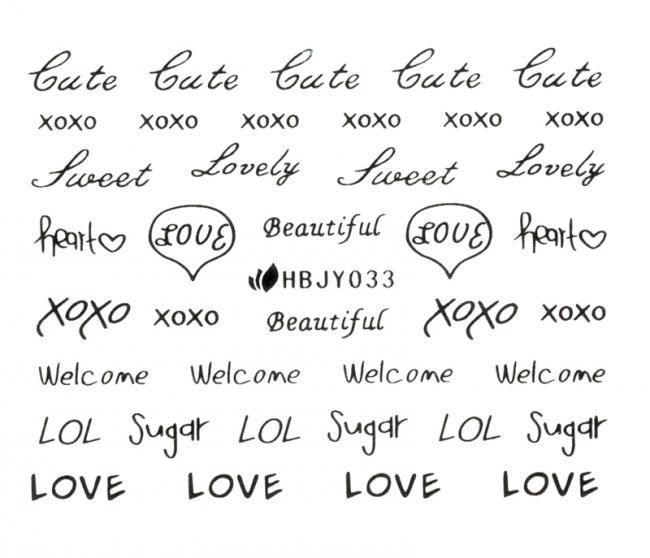 Cute Cute Cute Cute Cute
xoxo xoxo xoxo xoxo xoxo xoxo
Sweet Lovely Sweet Lovely
heart♡ LOVE Beautiful LOVE heart♡
HBJY033
XOXO xoxo Beautiful XOXO xoxo
Welcome Welcome Welcome Welcome
LOL Sugar LOL Sugar LOL Sugar
LOVE LOVE LOVE LOVE